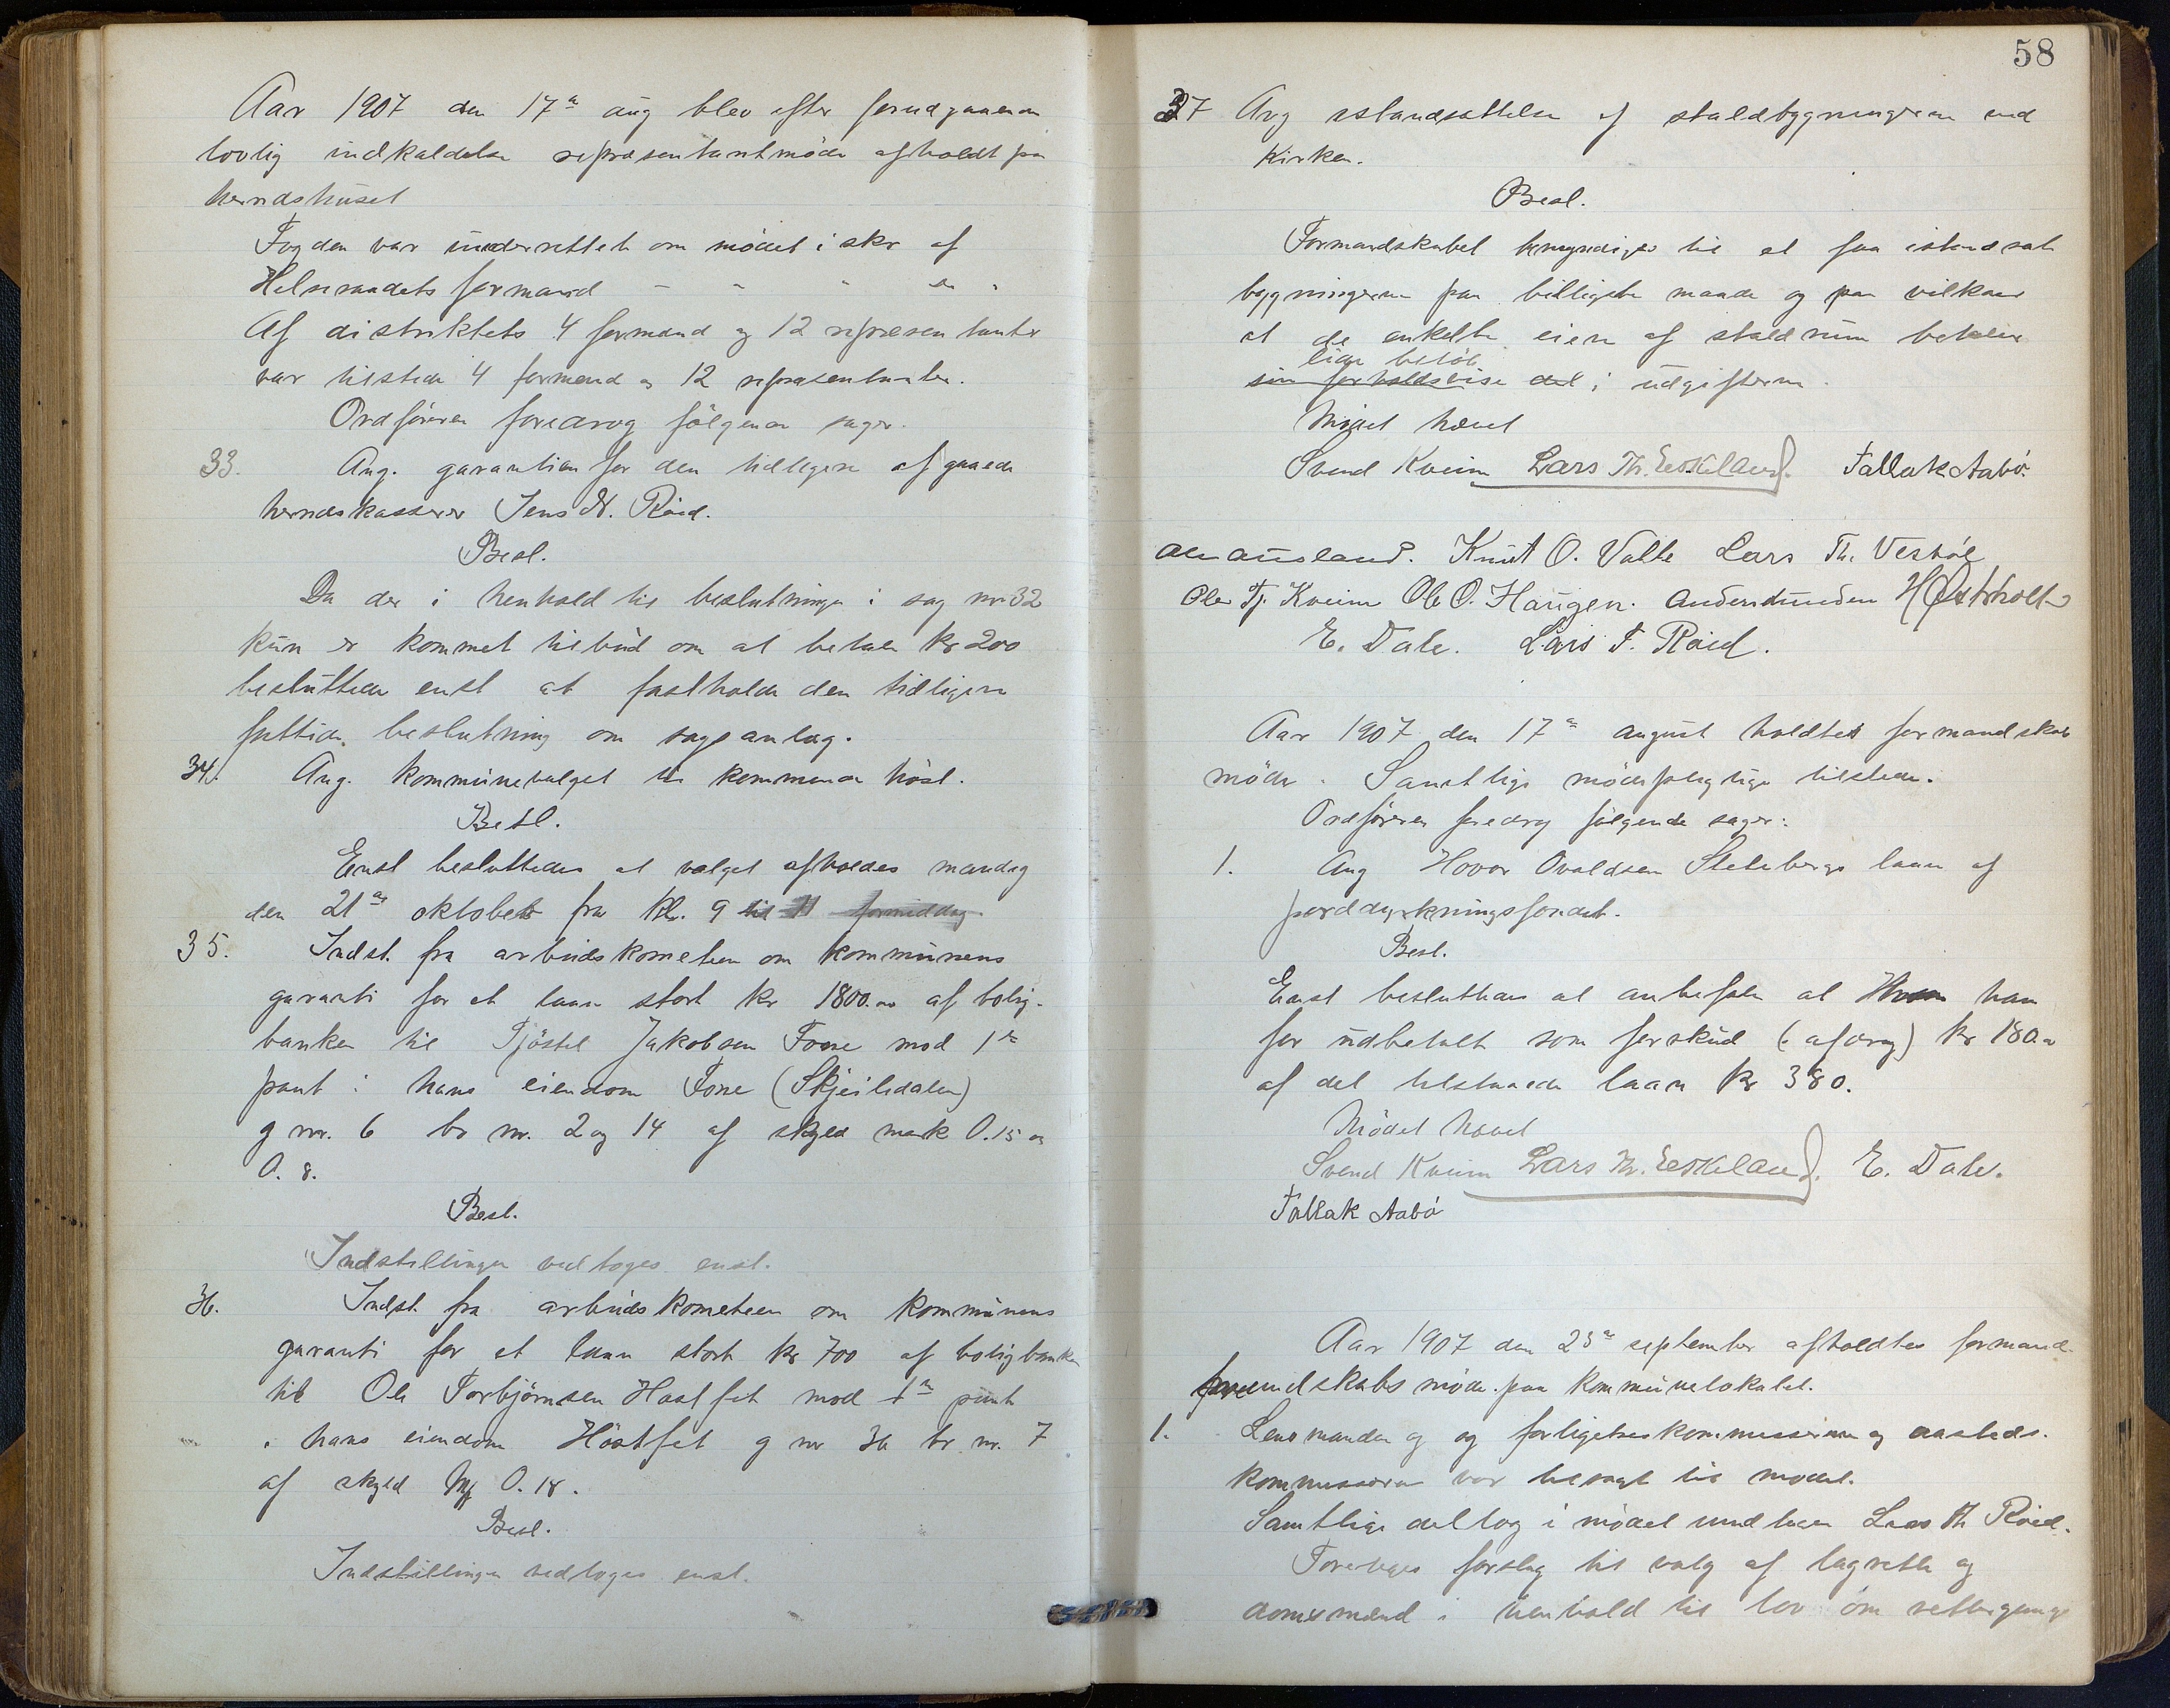 Aar 1907 den 17de aug blev efter forudgaaende
lovlig indkaldelse repræsentantmøde afholdt paa
herredshuset
Fogden var underrettet om mødet i skr af
Helseraadets formand - - - -
Af distriktets 4 formænd og 12 repræsentanter
var tilstede 4 formænd og 12 repræsentanter.
Ordføreren foredrog følgende sager.
33. Ang. garantien for den tidligere afgaaede
herredskasserer Jens N. Røid.
Besl.
Da der i henhold til beslutninger i sag nr 32
kun er kommet tilbud om at betale kr 200
besluttedes enst at fastholde den tidligere
fattede beslutning om saganlæg.
34. Ang. kommunevalget til kommende høst.
Besl.
Enst besluttedes at valget afholdes mandag
den 21de oktober fra kl. 9 til 11 formiddag
35. Indst. fra arbeidskometeen om kommunens
garanti for et laan stort kr 1800.00 af bolig-
banken til Tjøstel Jakobsen Fone mod 1ste
pant i hans eiendom Fone (Skjeiledalen)
g nr. 6 br nr. 2 og 14 af skyld mark 0.15 og
0.8.
Besl.
Indstillingen vedtoges enst.
36. Indst. fra arbeidskometeen om kommunens
garanti for et laan stort kr 700 af boligbanken
til Ole Torbjørnsen Høstfet mod 1ste pant
i hans eiendom Høstfet g nr 36 br. nr. 7
af skyld M 0.18.
Besl.
Indstillingen vedtoges enst.
58
37 Ang istandsættelse af staldbygningerne ved
Kirken.
Besl.
Formandskabet bemyndiges til at faa istandsat
bygningerne paa billigste maade og paa vilkaar
at de enkelte eiere af staldrum betaler
lige beløb
sin forholdsvise del i udgifterne.
Mødet hævet
Svend Kveim Lars Th. Eeskeland. Tallak Aabø.
Knut O. Valle Lars Th. Vesbøl
Ole Tj. Kveim Ole O. Haugen. H Østerholt
E. Dale. Lars T. Røid.
Aar 1907 den 17de august holdtes formandskab
møde. Samtlige mødepligtige tilstede.
Ordføreren foredrog følgende sager:
1. Ang Hovar Ovaldsen Sletebergs laan af
jorddyrkningsfondet.
Besl.
Enst besluttedes at anbefale at han
før udbetalt som forskud (afdrag) kr 180.00
af det tilstaaede laan kr 380.
Mødet hævet
Svend Kveim Lars Th. Eeskeland. E. Dale.
Tallak Aabø
Aar 1907 den 23de september afholdtes formand-
skabsmøde paa kommunelokalet.
1. Lensmanden og og forligelseskommisserne og aasteds-
kommissærer var tilsagt til mødet.
Samtlige deltog i mødet undtagen Lars Th Røid.
Foretoges forslag til valg af lagrette og
domsmænd i henhold til lov om rettergangs